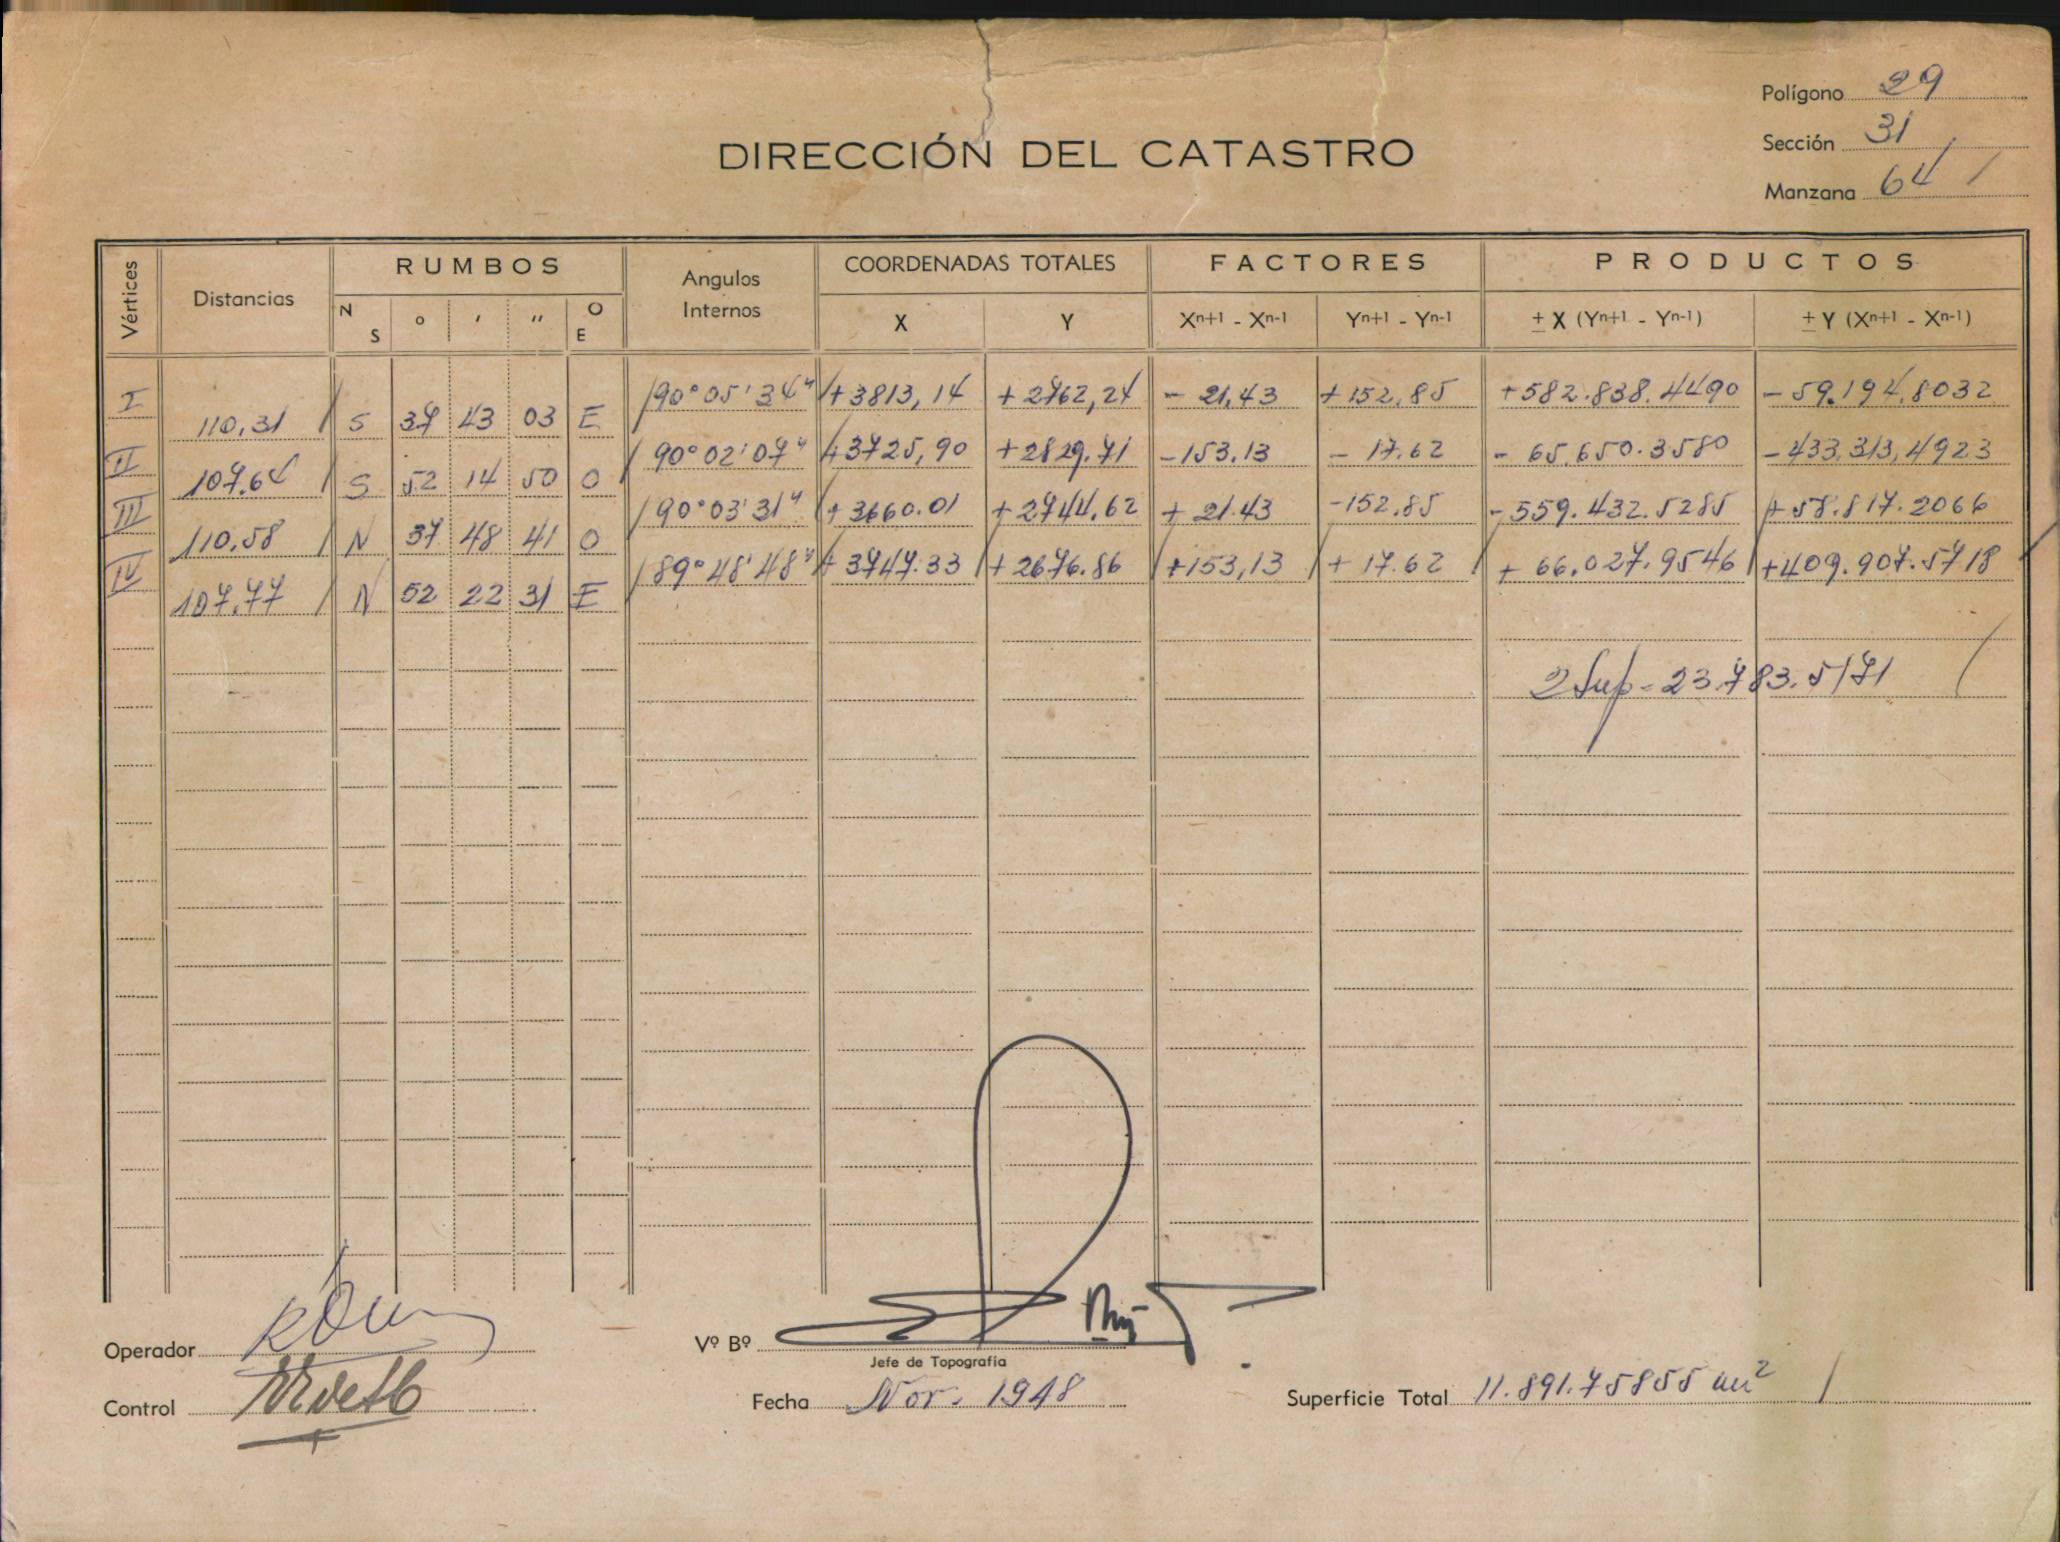 Polígono 29
Sección 31
Manzana 64
DIRECCIÓN DEL CATASTRO
Vértices Distancias RUMBOS Angulos Internos COORDENADAS TOTALES FACTORES PRODUCTOS
N S ° ' '' O E X Y Xn+1 - Xn-1 Yn+1 - Yn-1 ± X (Yn+1 - Yn-1) ± Y (Xn+1 - Xn-1)
I 90°05'34" +3813,14 +2762,24 - 21,43 +152,85 +582.838.4490 -59.194,8032
110,31 S 37 43 03 E
II 90°02'07" +3725,90 +2829.71 -153.13 - 17.62 - 65.650.3580 -433.313,4923
107.64 S 52 14 50 O
III 90°03'31" +3660.01 +2744.62 + 21.43 -152,85 -559.432.5285 +58.817.2066
110,58 N 37 48 41 O
IV 89°48'48" +3747.33 +2676.86 +153,13 + 17.62 + 66.027.9546 +409.907.5718
107,77 N 52 22 31 E
2 Sup = 23.783.5171
Operador
Vº Bº
Jefe de Topografía
Control
Fecha Nov. 1948
Superficie Total 11.891.75855 m2